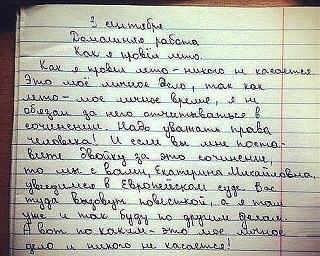 2 сентября
Домашняя работа
Как я провёл лето.
Как я провёл лето - никого не касается.
Это моё личное дело, так как
лето - моё личное время, я не
обязан за него отчитываться в
сочинении. Надо уважать права
человека! И если вы мне поста-
вите двойку за это сочинение,
то мы с вами, Екатерина Михайловна,
увидимся в Европейском суде. Вас
туда вызовут повесткой, а я там
уже и так буду по другим делам.
А вот по каким - это моё личное
дело и никого не касается!